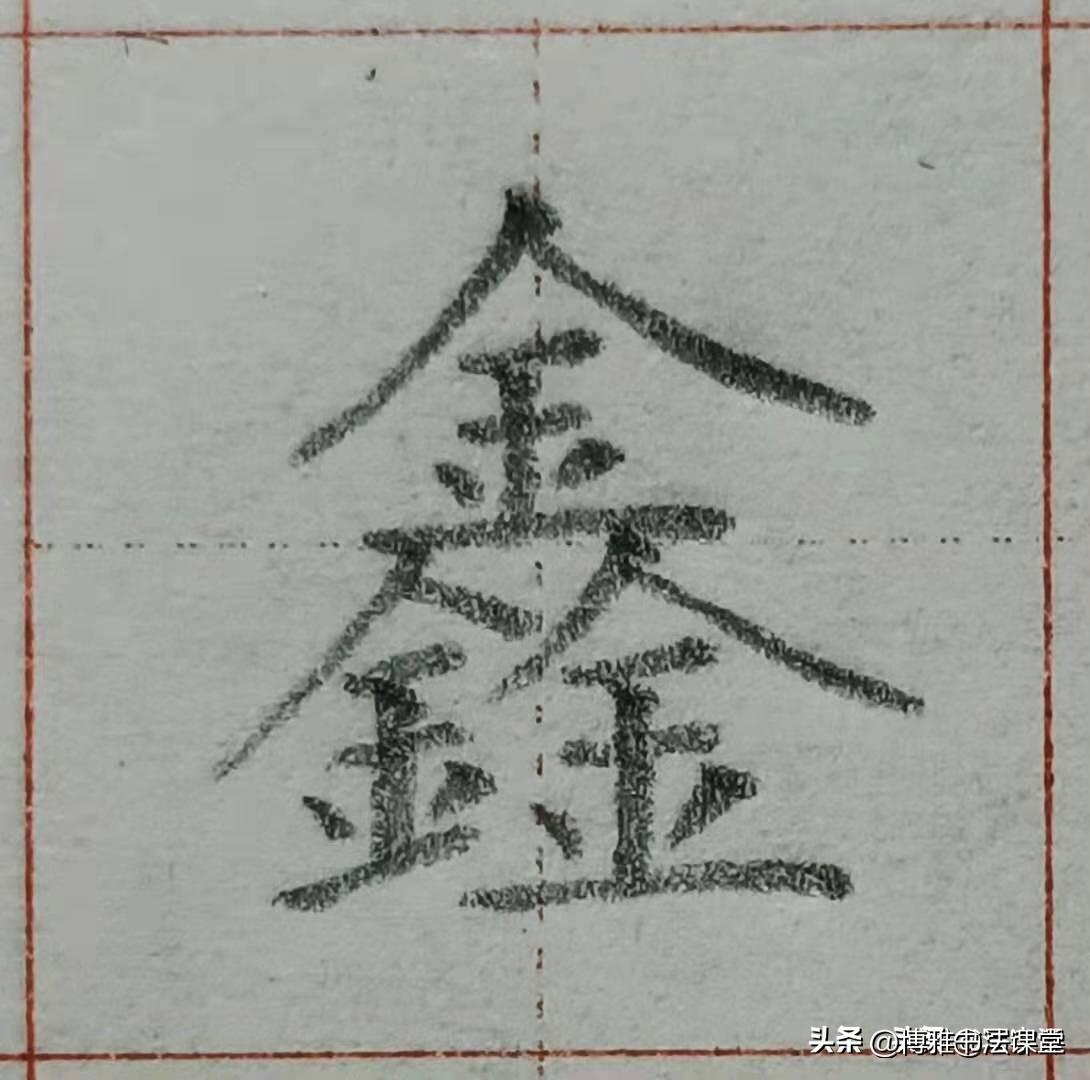 鑫
头条 @博雅书法课堂